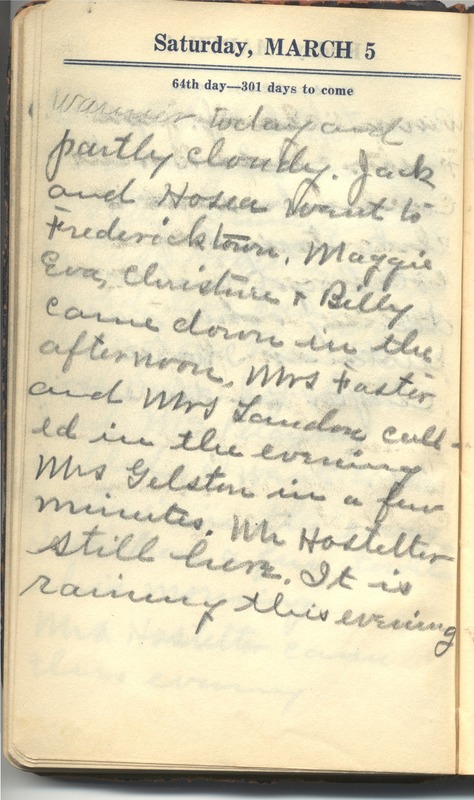 Saturday, MARCH 5
64th day—301 days to come
Warmer today and
partly cloudy. Jack
and Hosea went to
Fredericktown. Maggie
Eva, Christine + Billy
came down in the
afternoon. Mrs Faster
and Mrs Landon call-
ed in the evening
Mrs Gelston in a few
minutes. Mr Hostetter
still here. It is
raining this evening
Mrs Hostetter came
this evening